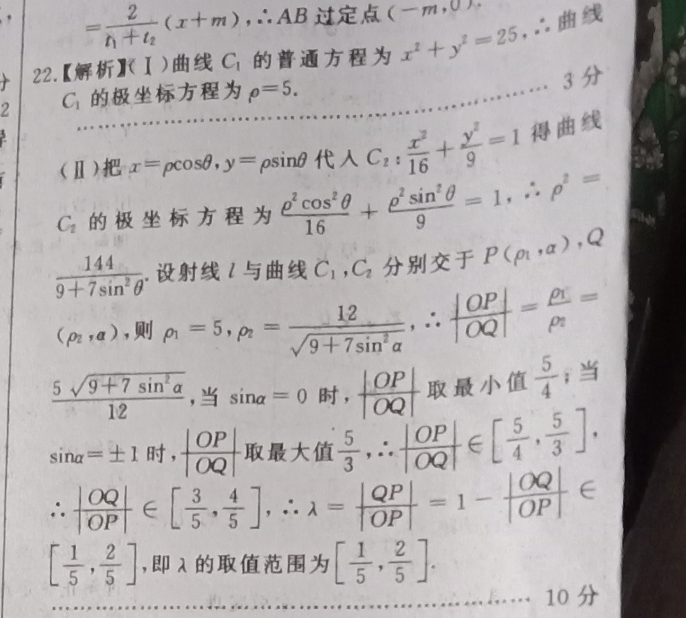 = \frac{2}{t_1+t_2}(x+m),∴AB过定点(-m,0).
22.【解析】(Ⅰ)曲线 C₁ 的普通方程为 x²+y²=25,∴曲线
C₁ 的极坐标方程为 ρ=5. …… 3分
(Ⅱ)把 x=ρcosθ,y=ρsinθ 代入 C₂:\frac{x²}{16}+\frac{y²}{9}=1 得曲线
C₂ 的极坐标方程为 \frac{ρ²cos²θ}{16}+\frac{ρ²sin²θ}{9}=1,∴ρ²=
\frac{144}{9+7sin²θ}.设射线 l 与曲线 C₁,C₂ 分别交于 P(ρ₁,α),Q
(ρ₂,α),则 ρ₁=5,ρ₂=\frac{12}{\sqrt{9+7sin²α}},∴\frac{|OP|}{|OQ|}=\frac{ρ₁}{ρ₂}=
\frac{5\sqrt{9+7sin²α}}{12},当 sinα=0 时,\frac{|OP|}{|OQ|}取最小值\frac{5}{4};当
sinα=±1时,\frac{|OP|}{|OQ|}取最大值\frac{5}{3},∴\frac{|OP|}{|OQ|}∈[\frac{5}{4},\frac{5}{3}],
∴\frac{|OQ|}{|OP|}∈[\frac{3}{5},\frac{4}{5}],∴λ=\frac{|QP|}{|OP|}=1-\frac{|OQ|}{|OP|}∈
[\frac{1}{5},\frac{2}{5}],即λ的取值范围为[\frac{1}{5},\frac{2}{5}].
…… 10分